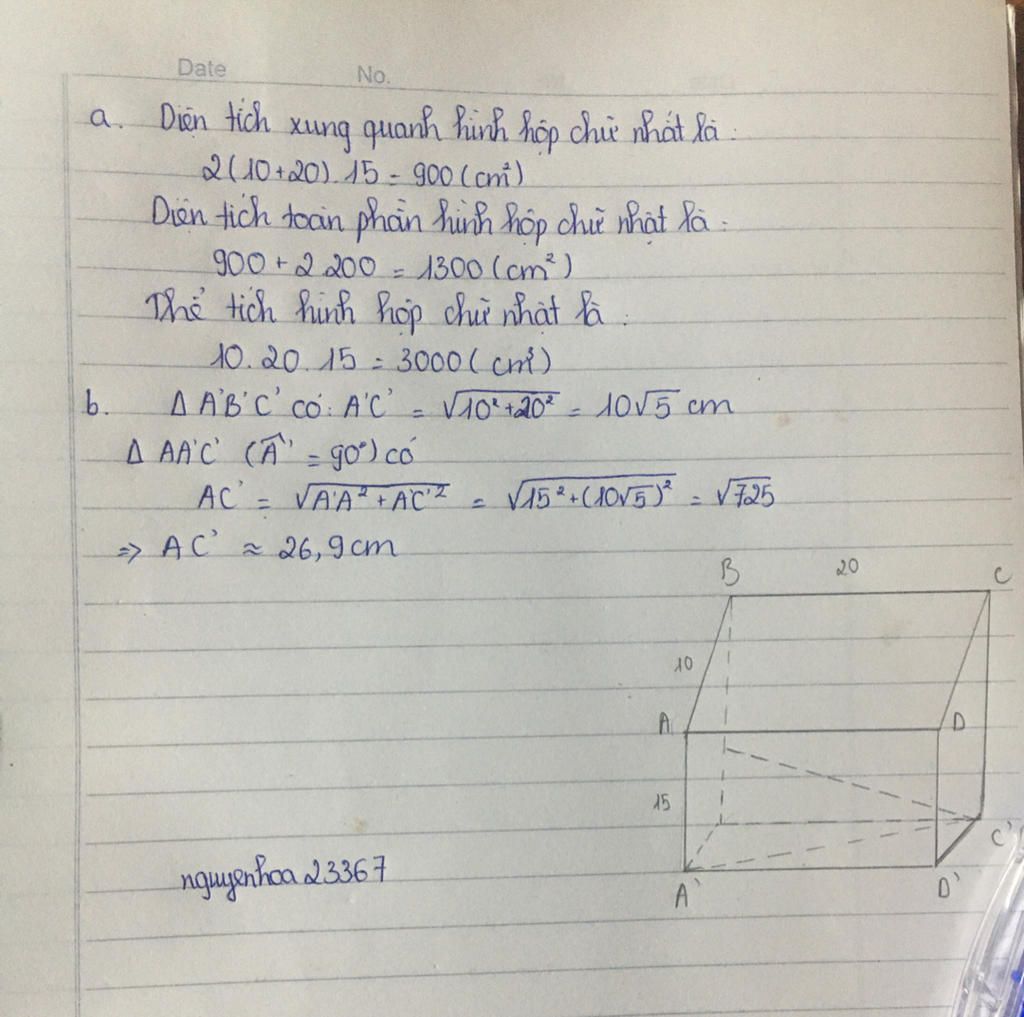 Date No.
a. Diện tích xung quanh hình hộp chữ nhật là :
2(10+20).15 = 900 (cm²)
Diện tích toàn phần hình hộp chữ nhật là :
900 + 2.200 = 1300 (cm²)
Thể tích hình hộp chữ nhật là :
10.20.15 = 3000 (cm³)
b. Δ A'B'C' có: A'C' = √10²+20² = 10√5 cm
Δ AA'C' (Â' = 90°) có
AC' = √A'A² + A'C'² = √15²+(10√5)² = √725
⇒ AC' ≈ 26,9cm
B 20 C
10
A D
15
C'
nguyenhoa23367
A' D'